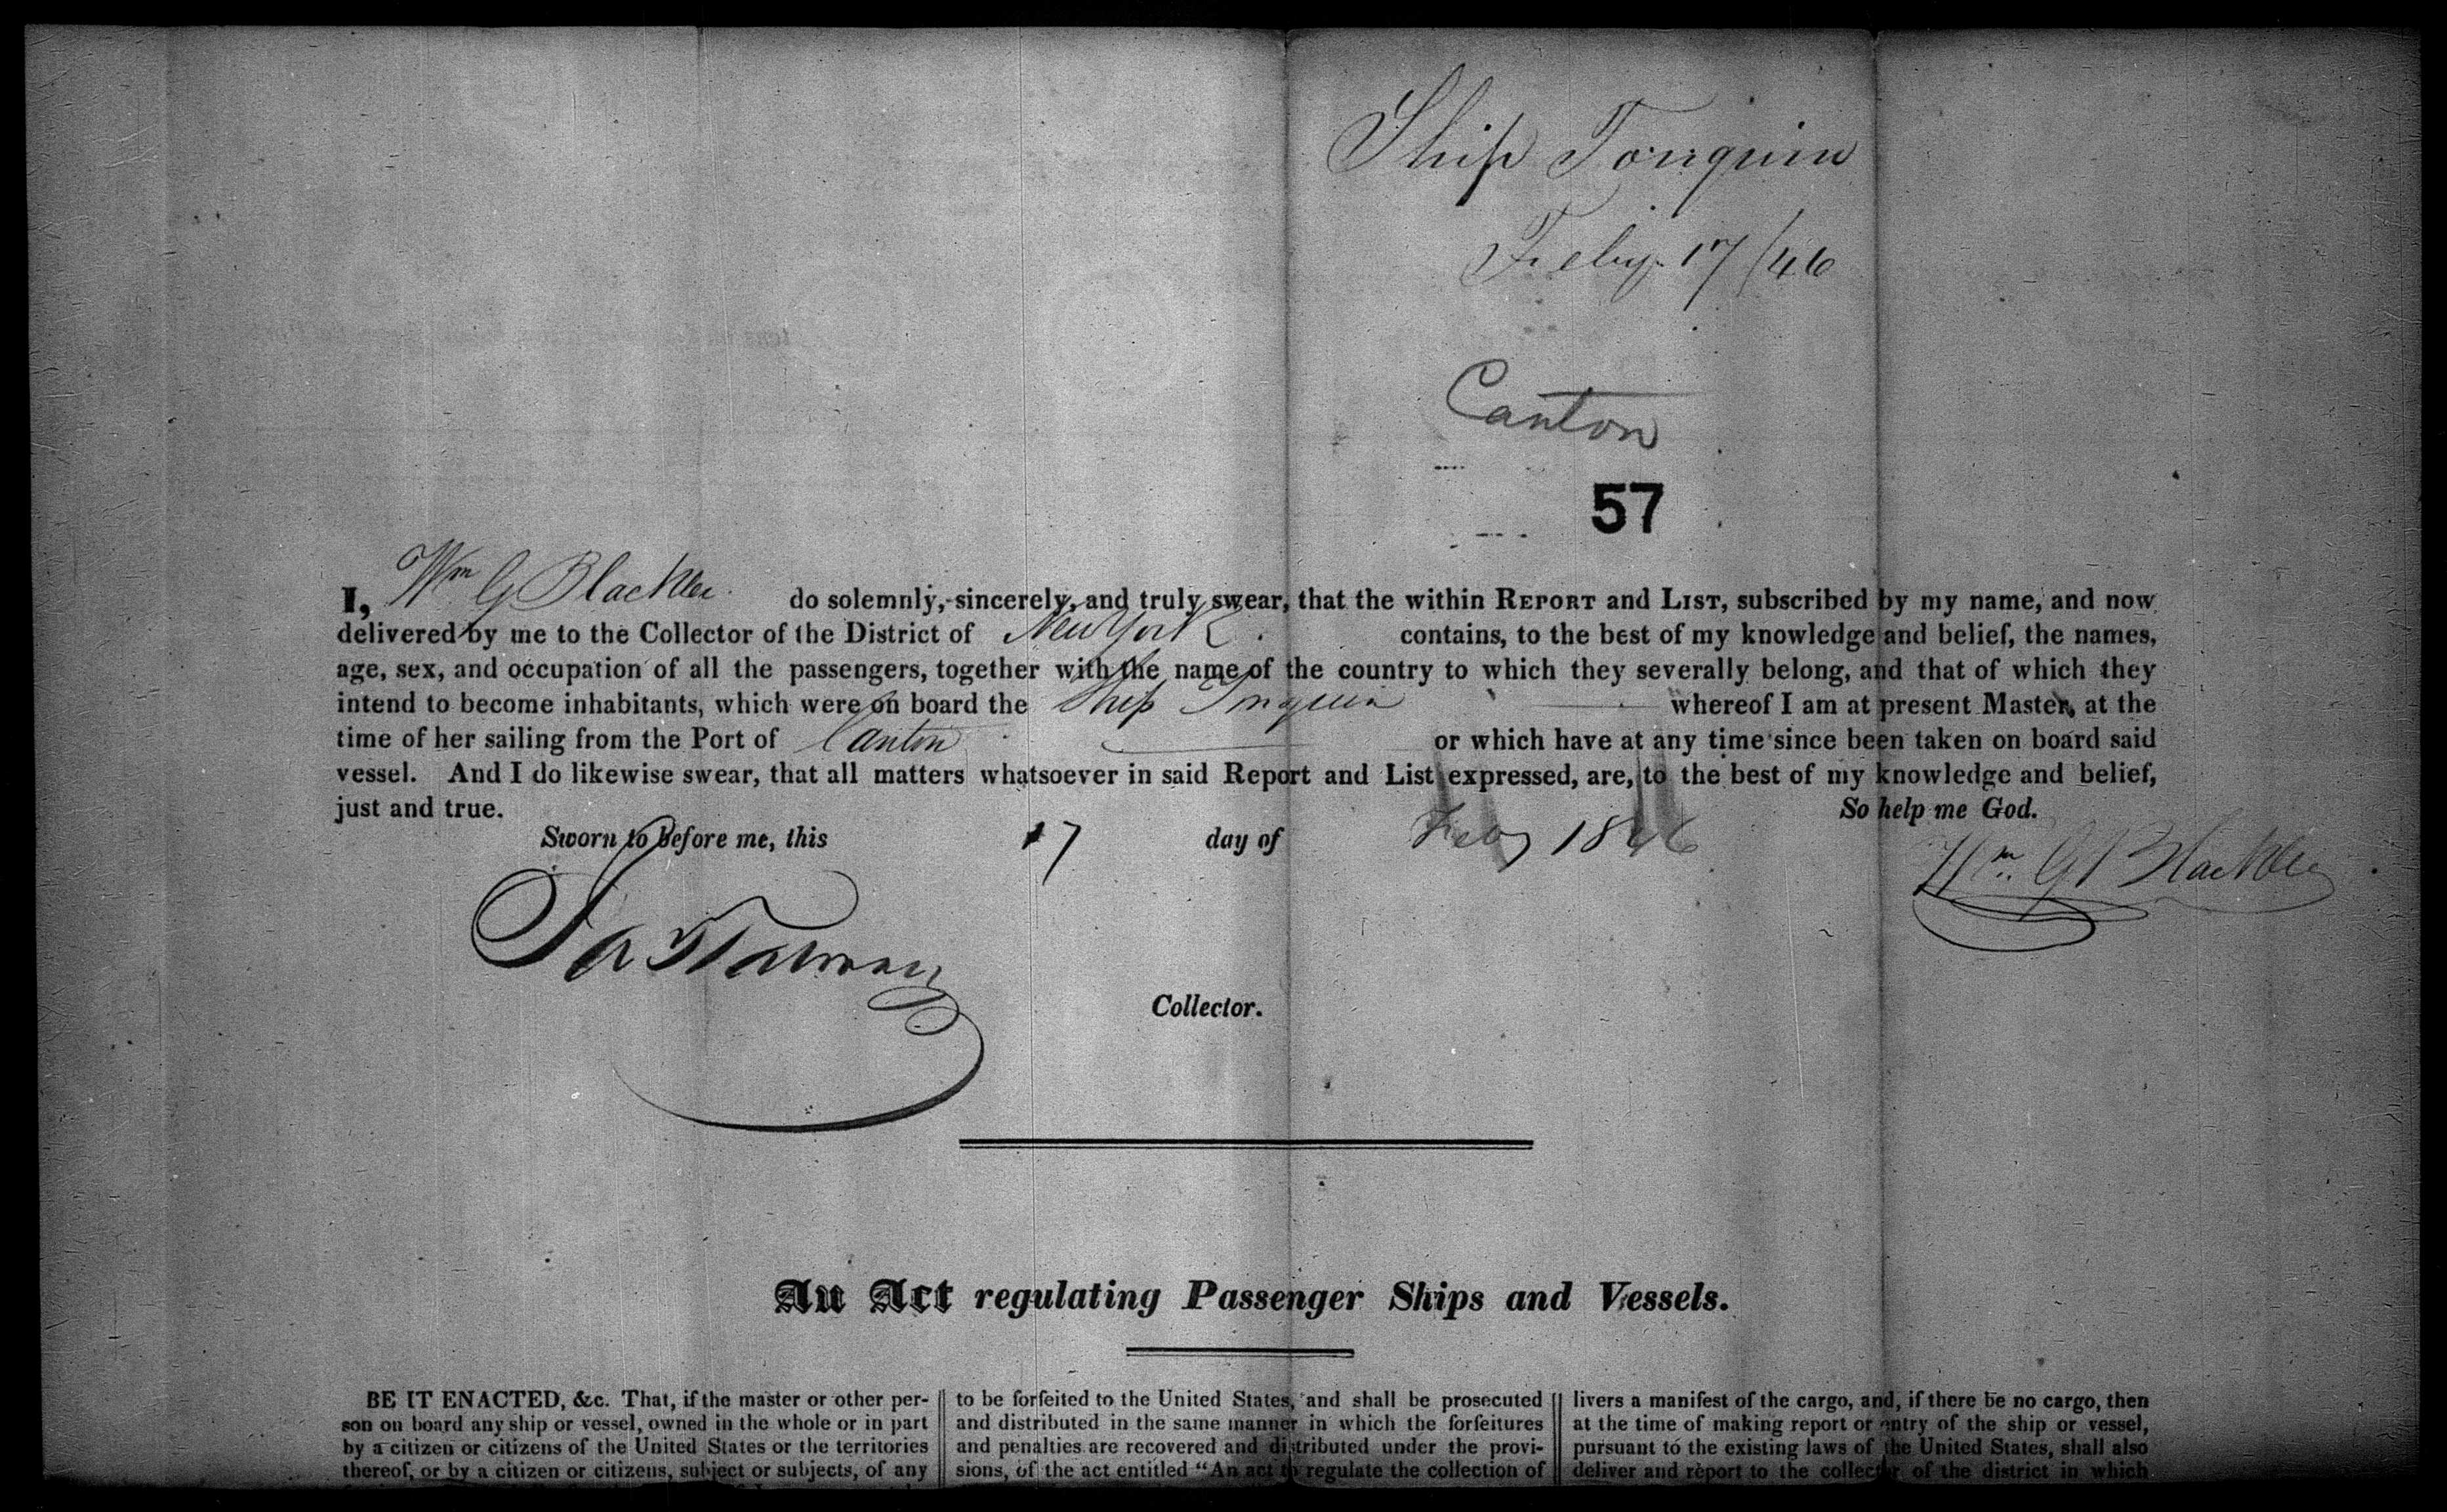 Ship Tonquin
Feby. 17/46
Canton
57
I, Wm G Blackler do solemnly, sincerely, and truly swear, that the within REPORT and LIST, subscribed by my name, and now
delivered by me to the Collector of the District of New York contains, to the best of my knowledge and belief, the names,
age, sex, and occupation of all the passengers, together with the name of the country to which they severally belong, and that of which they
intend to become inhabitants, which were on board the Ship Tonquin whereof I am at present Master, at the
time of her sailing from the Port of Canton or which have at any time since been taken on board said
vessel. And I do likewise swear, that all matters whatsoever in said Report and List expressed, are, to the best of my knowledge and belief,
just and true. So help me God.
Sworn to before me, this 17 day of Feby 1846
Wm. G Blackler
Collector.
An Act regulating Passenger Ships and Vessels.
BE IT ENACTED, &c. That, if the master or other per-
son on board any ship or vessel, owned in the whole or in part
by a citizen or citizens of the United States or the territories
thereof, or by a citizen or citizens, subject or subjects, of any
to be forfeited to the United States, and shall be prosecuted
and distributed in the same manner in which the forfeitures
and penalties are recovered and distributed under the provi-
sions, of the act entitled "An act to regulate the collection of
livers a manifest of the cargo, and, if there be no cargo, then
at the time of making report or entry of the ship or vessel,
pursuant to the existing laws of the United States, shall also
deliver and report to the collector of the district in which